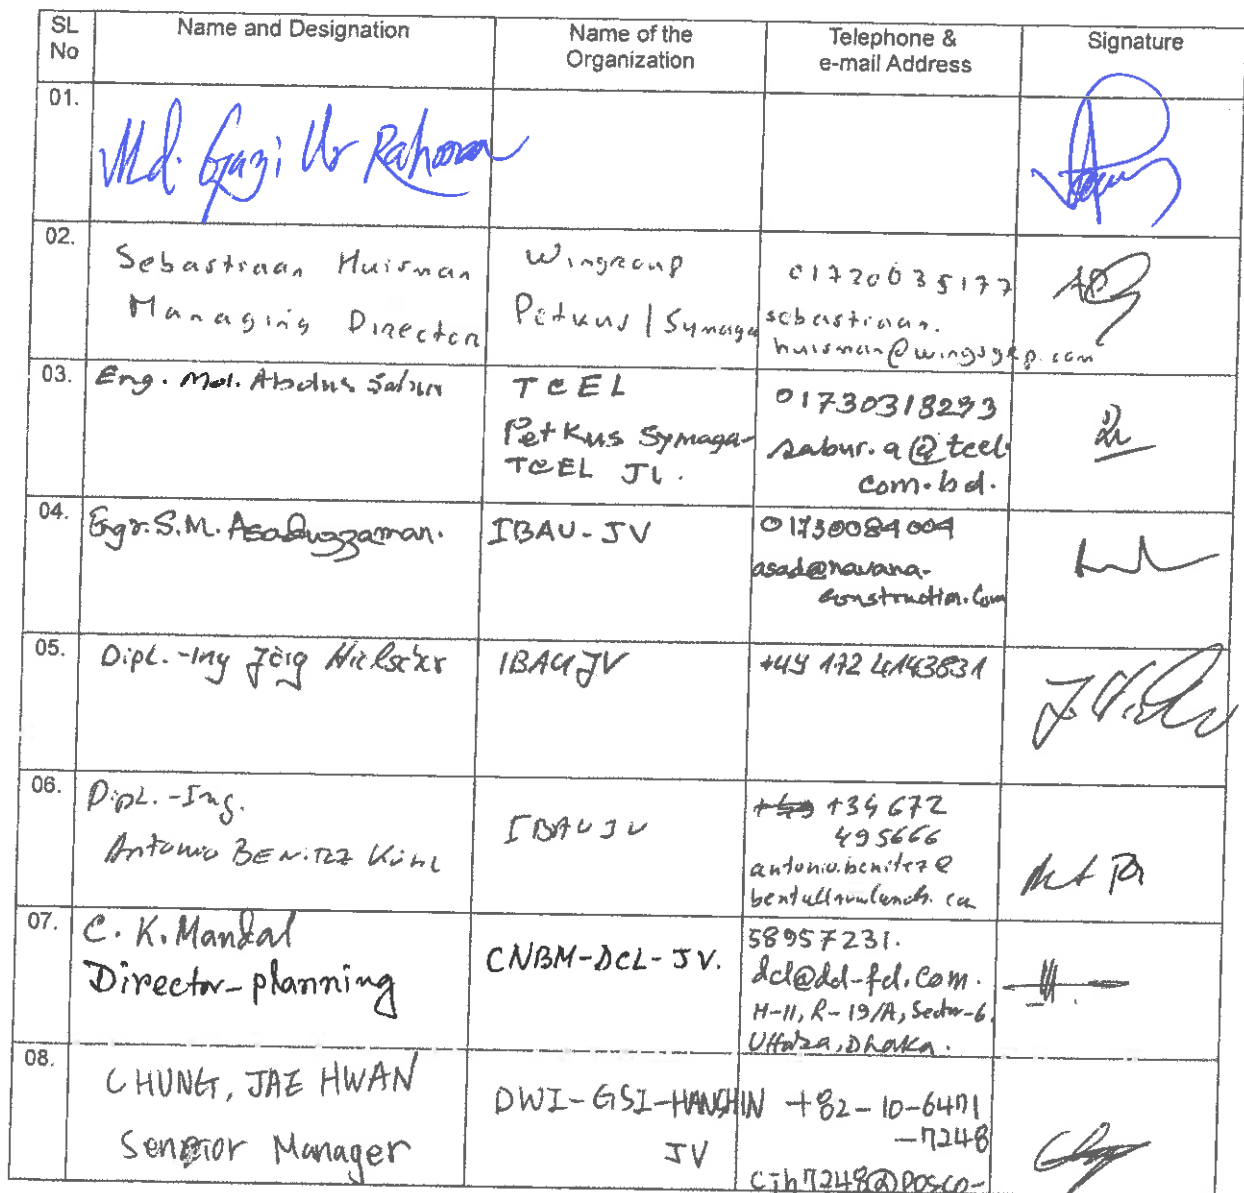 SL No
Name and Designation
Name of the Organization
Telephone & e-mail Address
Signature
01.
Md. Gazi Ur Rahman
02.
Sebastiaan Huisman
Managing Director
Wingroup
Petkus / Symaga
01720035177
sebastiaan.
huisman@wingsgrp.com
03.
Eng. Md. Abdus Sabur
TCEL
Petkus Symaga-
TCEL JV.
01730318293
sabur.a@tcel.
com.bd.
04.
Engr. S.M. Asaduzzaman.
IBAU-JV
01730084004
asad@navana-
construction.com
05.
Dipl.-Ing Jörg
IBAU JV
+49 172 4143831
06.
Dipl.-Ing.
Antonio BENITEZ
IBAU JV
+34 672
495666
antonio.benitez@
07.
C. K. Mandal
Director-planning
CNBM-DCL-JV.
58957231.
dcl@dd-fd.com.
H-11, R-19/A, Sector-6.
Uttara, Dhaka.
08.
CHUNG, JAE HWAN
Senior Manager
DWI-GSI-HANSHIN
JV
+82-10-6471
-7248
cjh7248@posco-